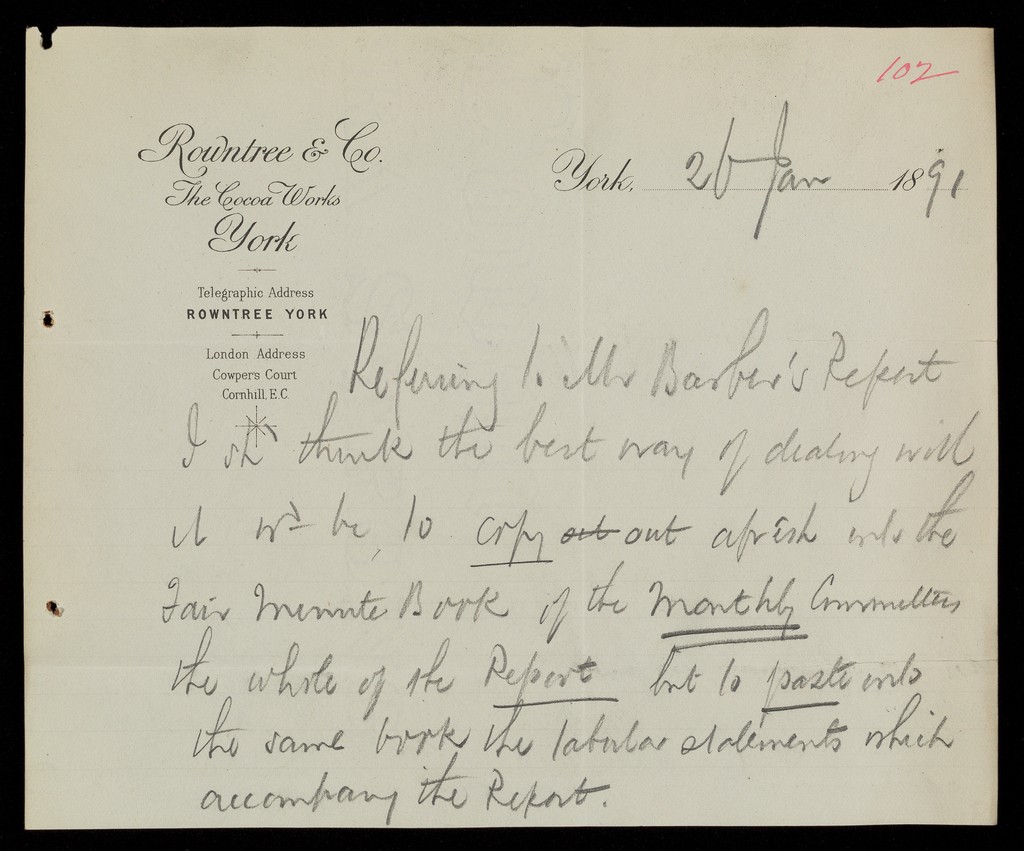 102
Rowntree & Co.
The Cocoa Works
York
Telegraphic Address
ROWNTREE YORK
London Address
Cowper's Court
Cornhill, E.C.
York, 26 Jan 1891
Referring to Mr Barber's Report
I shd think the best way of dealing with
it wd be, to copy out out afresh into the
Fair Minute Book of the Monthly Committees
the whole of the Report but to paste into
the same book the tabular statements which
accompany the Report.